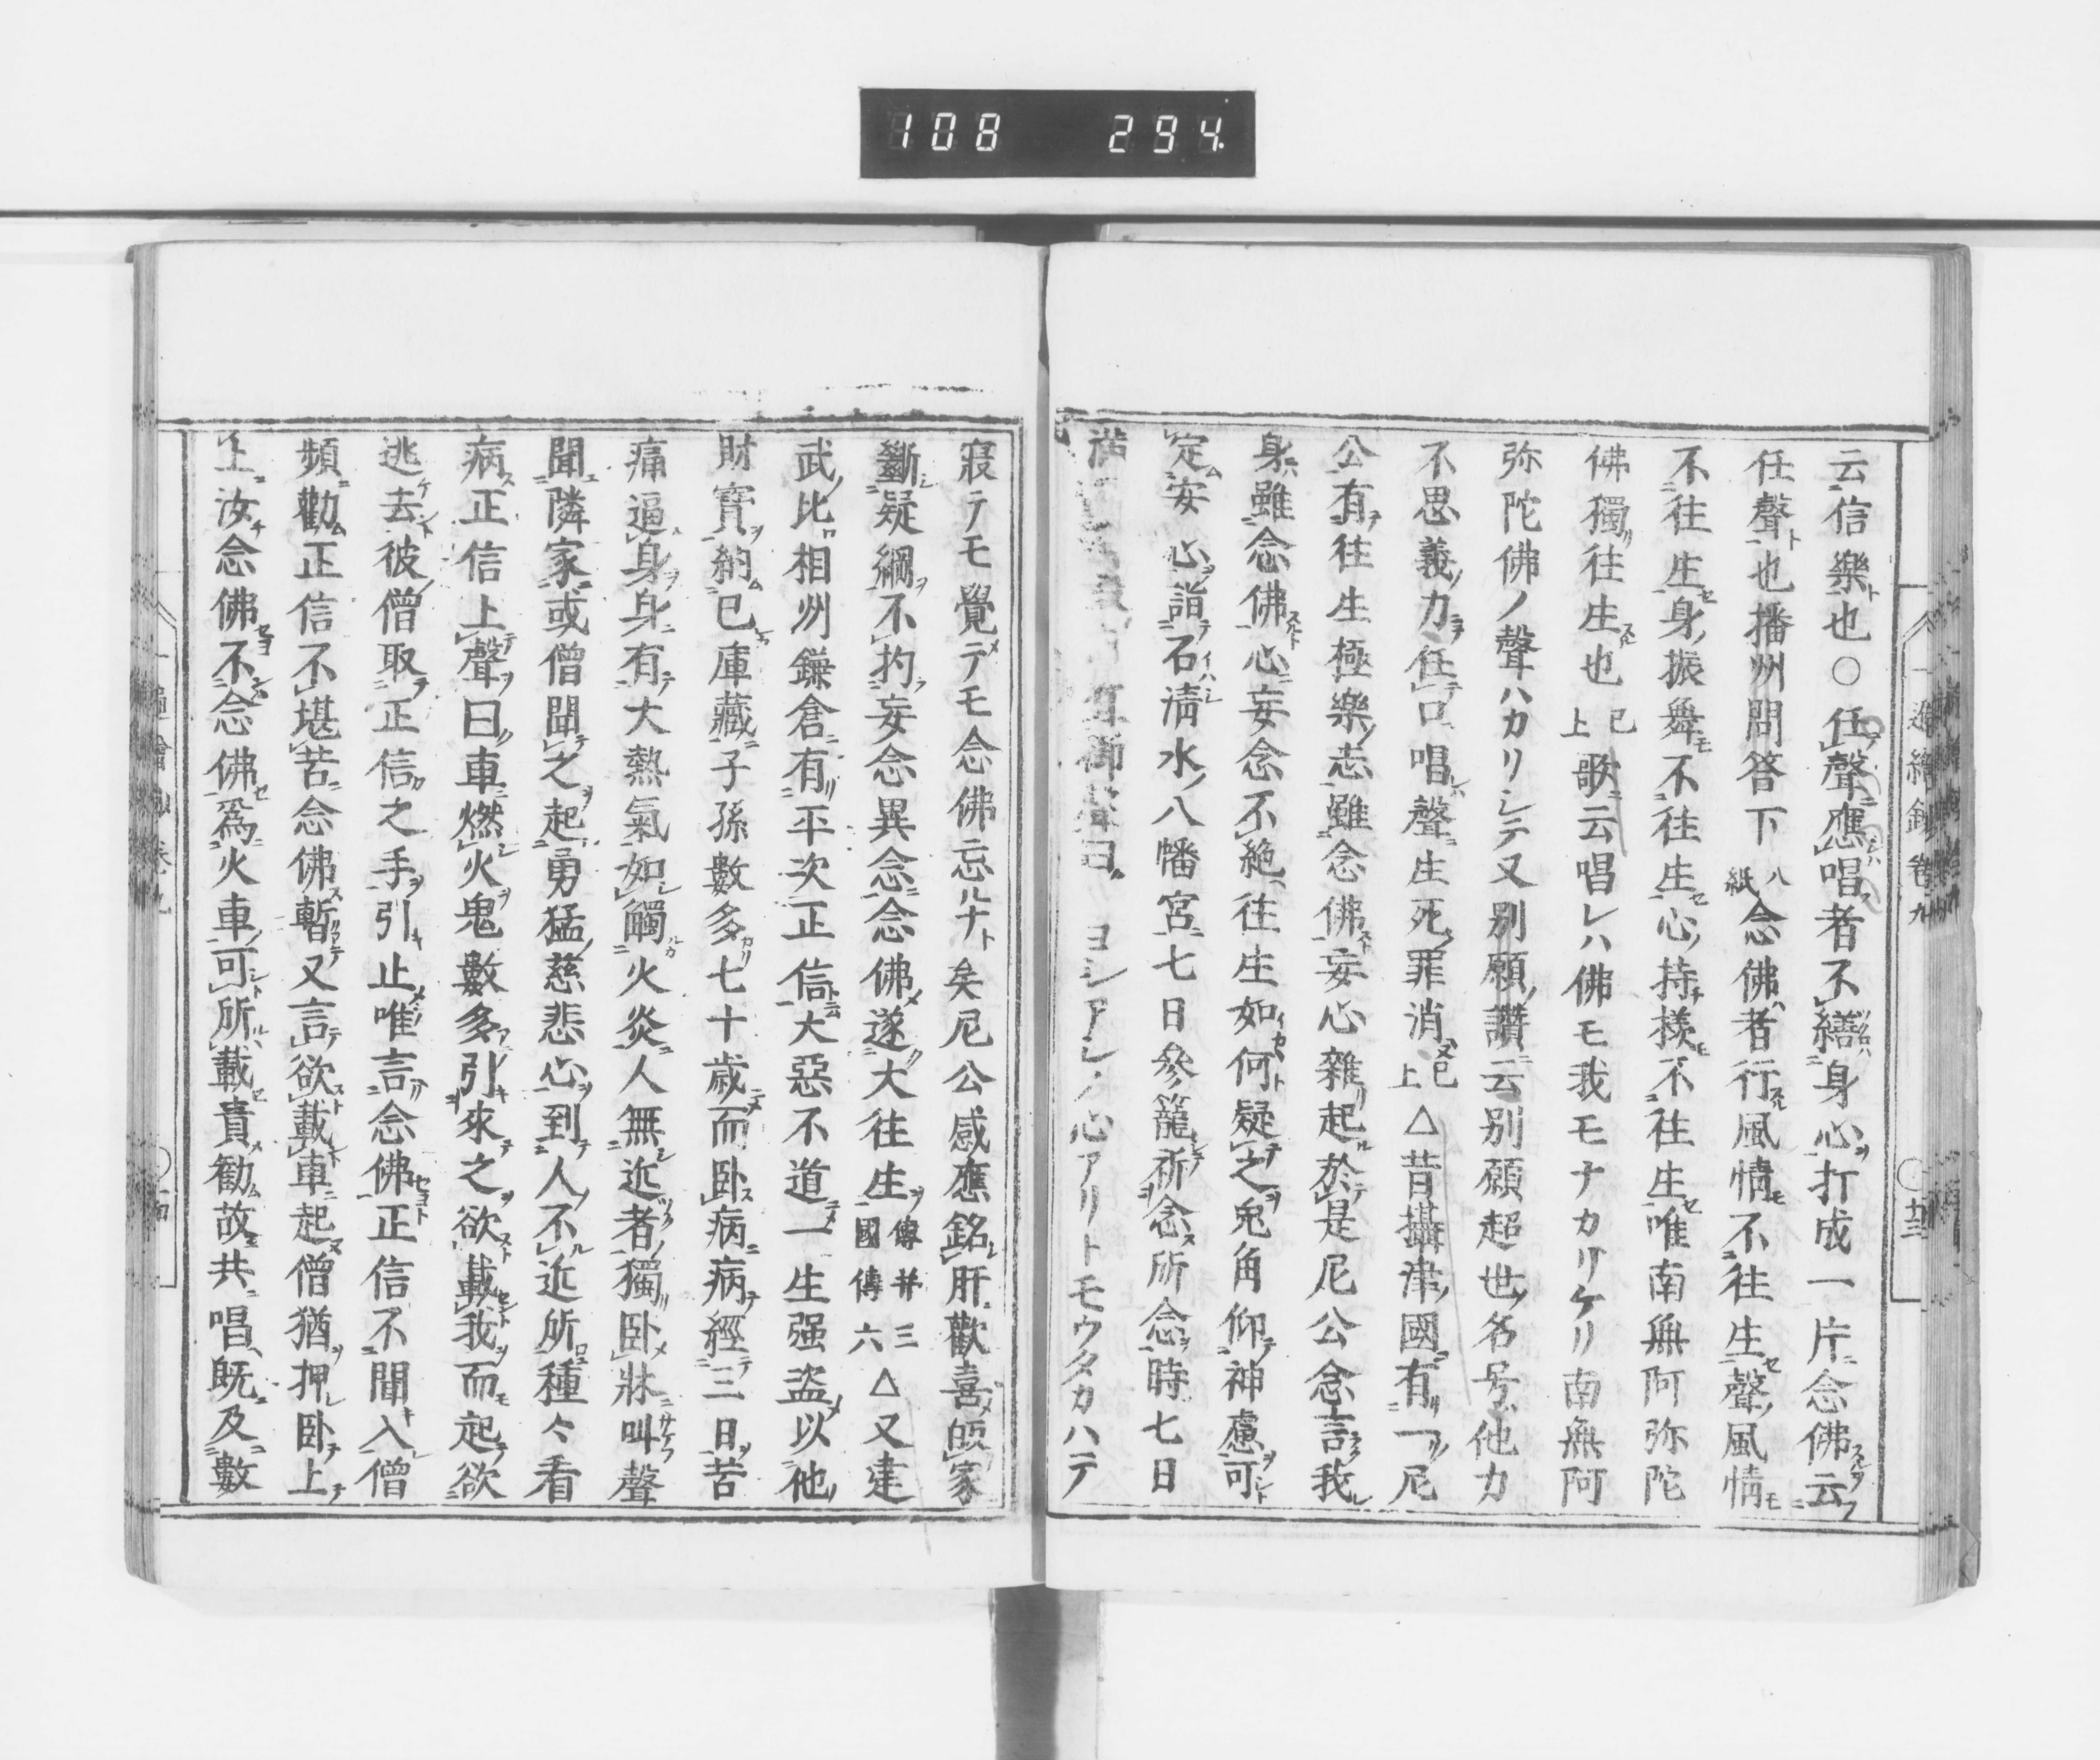 108 294
一遍繪鈔卷九
云信樂也○任聲應唱者不繕身心打成一片念佛云
任聲也播州問答下八紙念佛者行風情不往生聲風情
不往生身振舞不往生心持樣不往生唯南無阿弥陀
佛獨往生也已上歌云唱レハ佛モ我モナカリケリ南無阿
弥陀佛ノ聲ハカリシテ又别願讚云别願超世名号他力
不思義力任口唱聲生死罪消已上△昔攝津國有一尼
公有往生極樂志雖念佛妄心雜起於是尼公念言我
身雖念佛心妄念不絶往生如何疑之兔角仰神慮可
定安心詣石淸水八幡宮七日參籠祈念所念時七日
滿 御聲曰ヨシアシノ心アリトモウタカハテ
寢テモ覺テモ念佛忘ルナト矣尼公感應銘肝歡喜皈家
斷疑綱不扚妄念異念念佛遂大往生傳并三國傳六△又建
武比相州鎌倉有平次正信大惡不道一生强盗以他
財寳納已庫藏子孫數多七十歲而卧病病經三日苦
痛逼身身有大熱氣如觸火炎人無近者獨卧牀叫聲
聞隣家或僧聞之起勇猛慈悲心到人不近所種々看
病正信上聲曰車燃火鬼數多引來之欲載我而起欲
逃去彼僧取正信之手引止唯言念佛正信不聞入僧
頻勸正信不堪苦念佛暫又言欲載車起僧猶押卧上
上汝念佛不念佛爲火車可所載責勸故共唱既及數